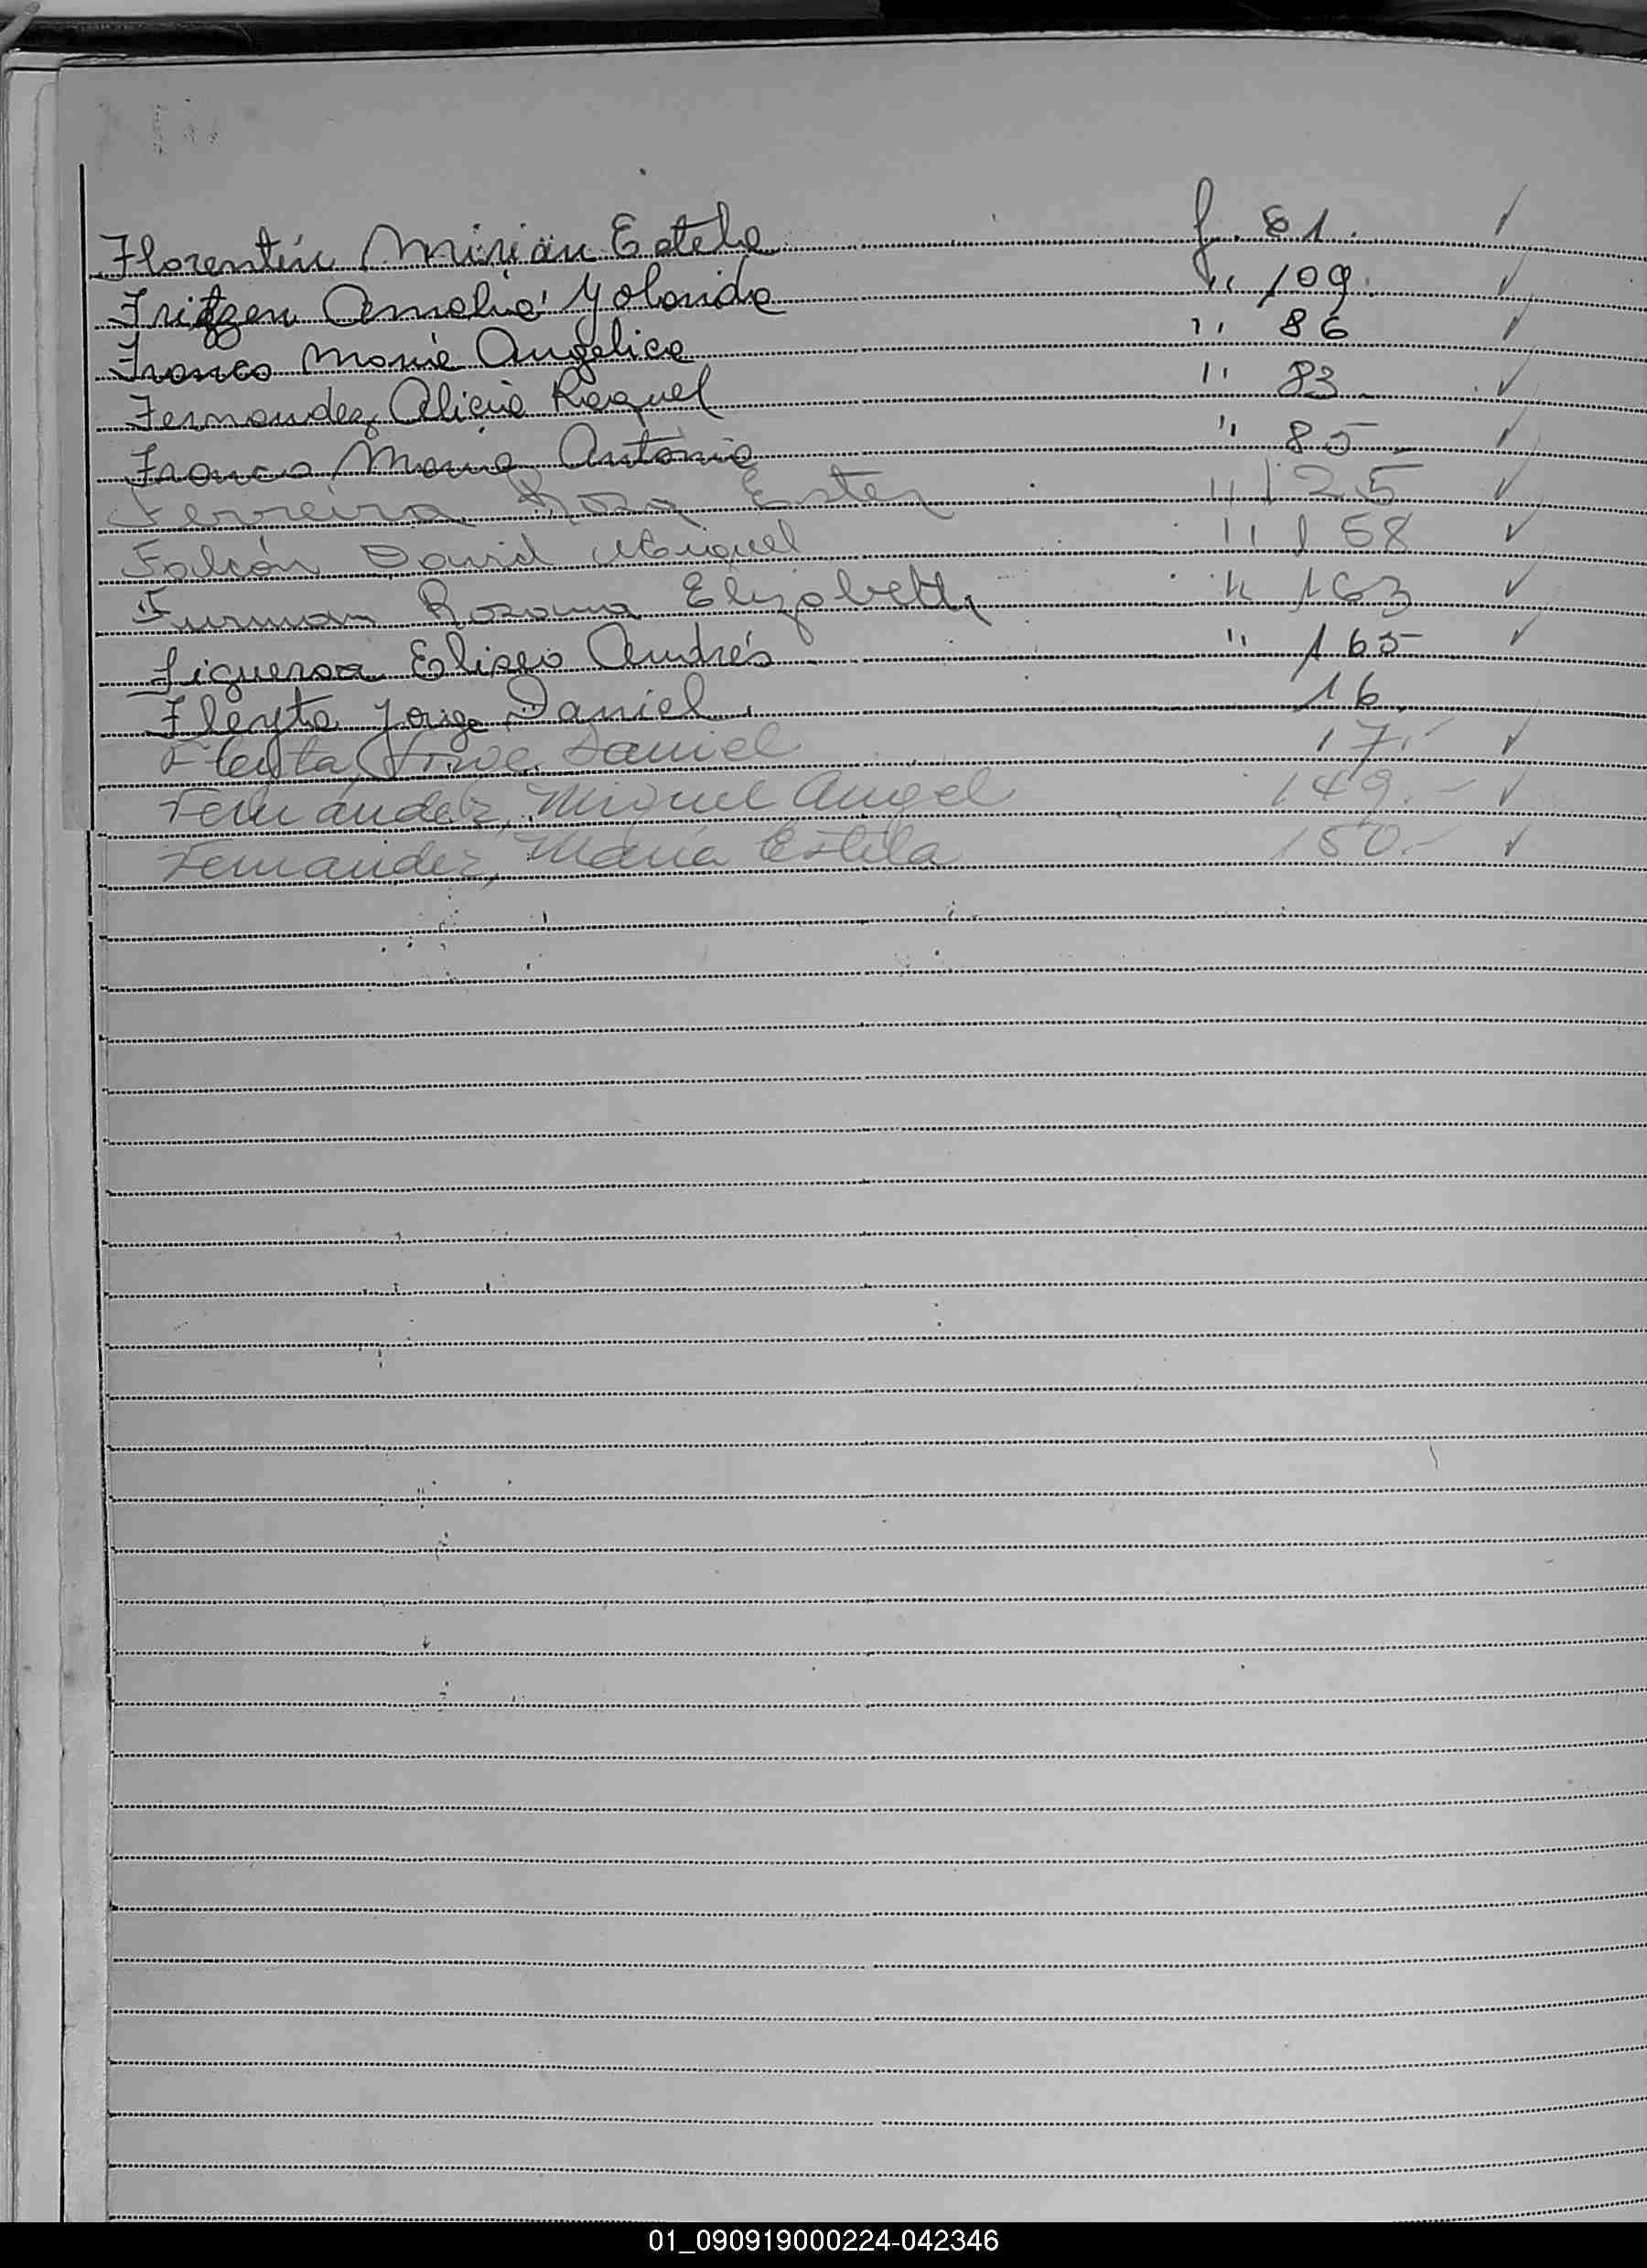 Florentín Mirian Estela f. 81. ✓
Fritzen Amelia Yolanda " 109. ✓
Franco María Angélica " 86 ✓
Fernandez Alicia Raquel " 83 ✓
Franco María Antonia " 85 ✓
Ferreira Rosa Ester " 125 ✓
Falcón David Miguel " 158 ✓
Furman Rosana Elizabeth " 163 ✓
Figueroa Eliseo Andrés " 165 ✓
Fleyta Jorge Daniel. 16.
Fleyta, Jorge Daniel 17.- ✓
Fernández, Miguel Angel 149.- ✓
Fernández, María Estela 150.- ✓
01_090919000224-042346